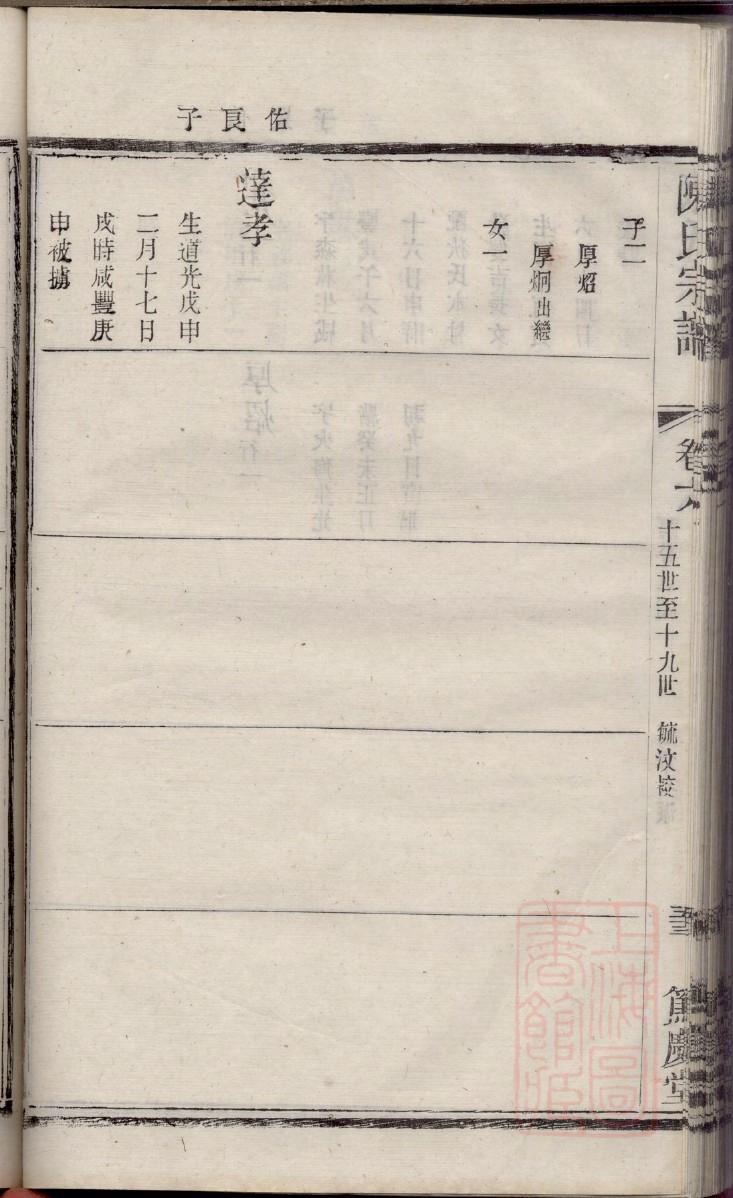 陳氏宗譜
卷六
十五世至十九世
毓汶
篤慶堂
子二
厚炤
厚炯出繼
女一
佑良子
達孝
生道光戊申
二月十七日
戌時咸豐庚
申被擄
上海圖
書館藏